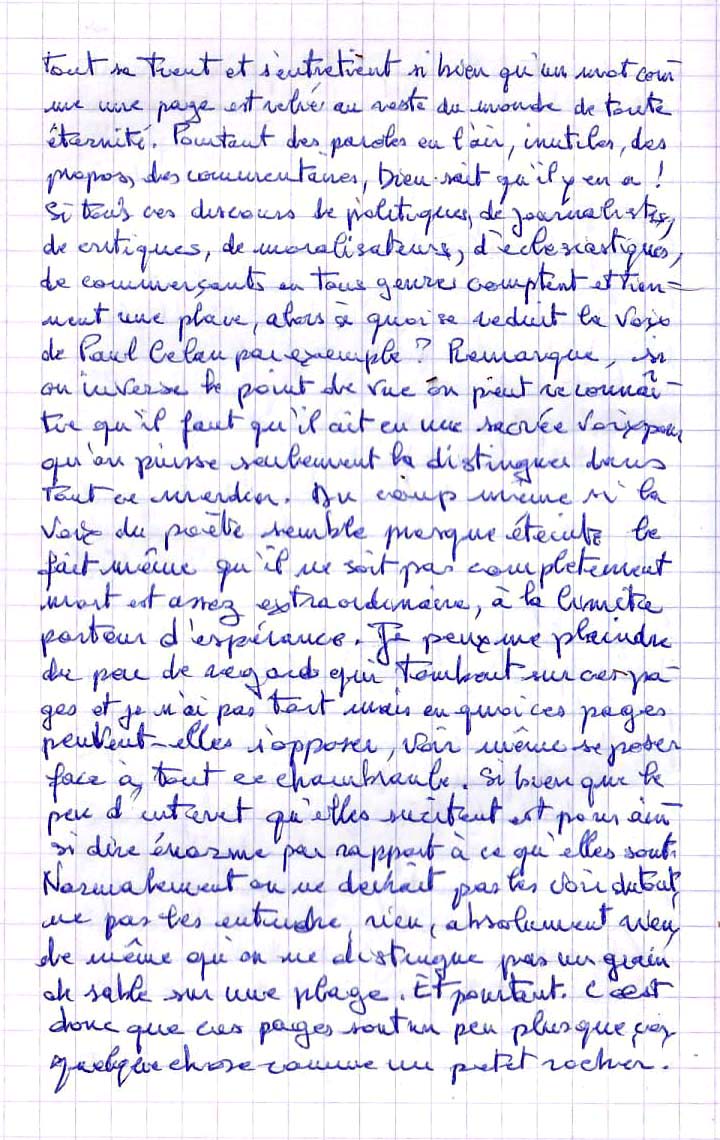 tout se tient et s'entretient si bien qu'un mot com-
me une page est relié au reste du monde de toute
éternité. Pourtant des paroles en l'air, inutiles, des
propos, des commentaires, Dieu sait qu'il y en a !
Si tous ces discours de politiques, de journalistes,
de critiques, de moralisateurs, d'éclesiastiques,
de commerçants en tous genres comptent et tien-
nent une place, alors à quoi se reduit la voix
de Paul Celan par exemple ? Remarque, si
on inverse le point de vue on peut reconnaî-
tre qu'il faut qu'il ait eu une sacrée voix pour
qu'on puisse seulement la distinguer dans
tout ce merdier. Du coup même si la
voix du poète semble presque éteinte le
fait même qu'il ne soit pas completement
mort est assez extraordinaire, à la limite
porteur d'espérance. Je peux me plaindre
du peu de regards qui tombent sur ces pa-
ges et je n'ai pas tort mais en quoi ces pages
peuvent-elles s'opposer, voir même se poser
face à tout ce chambranle. Si bien que le
peu d'interet qu'elles sucitent est pour ain-
si dire énorme par rapport à ce qu'elles sont.
Normalement on ne devrait pas les voir du tout,
ne pas les entendre, rien, absolument rien,
de même qu'on ne distingue pas un grain
de sable sur une plage. Et pourtant. C'est
donc que ces pages sont un peu plus que ça,
quelque chose comme un petit rocher.